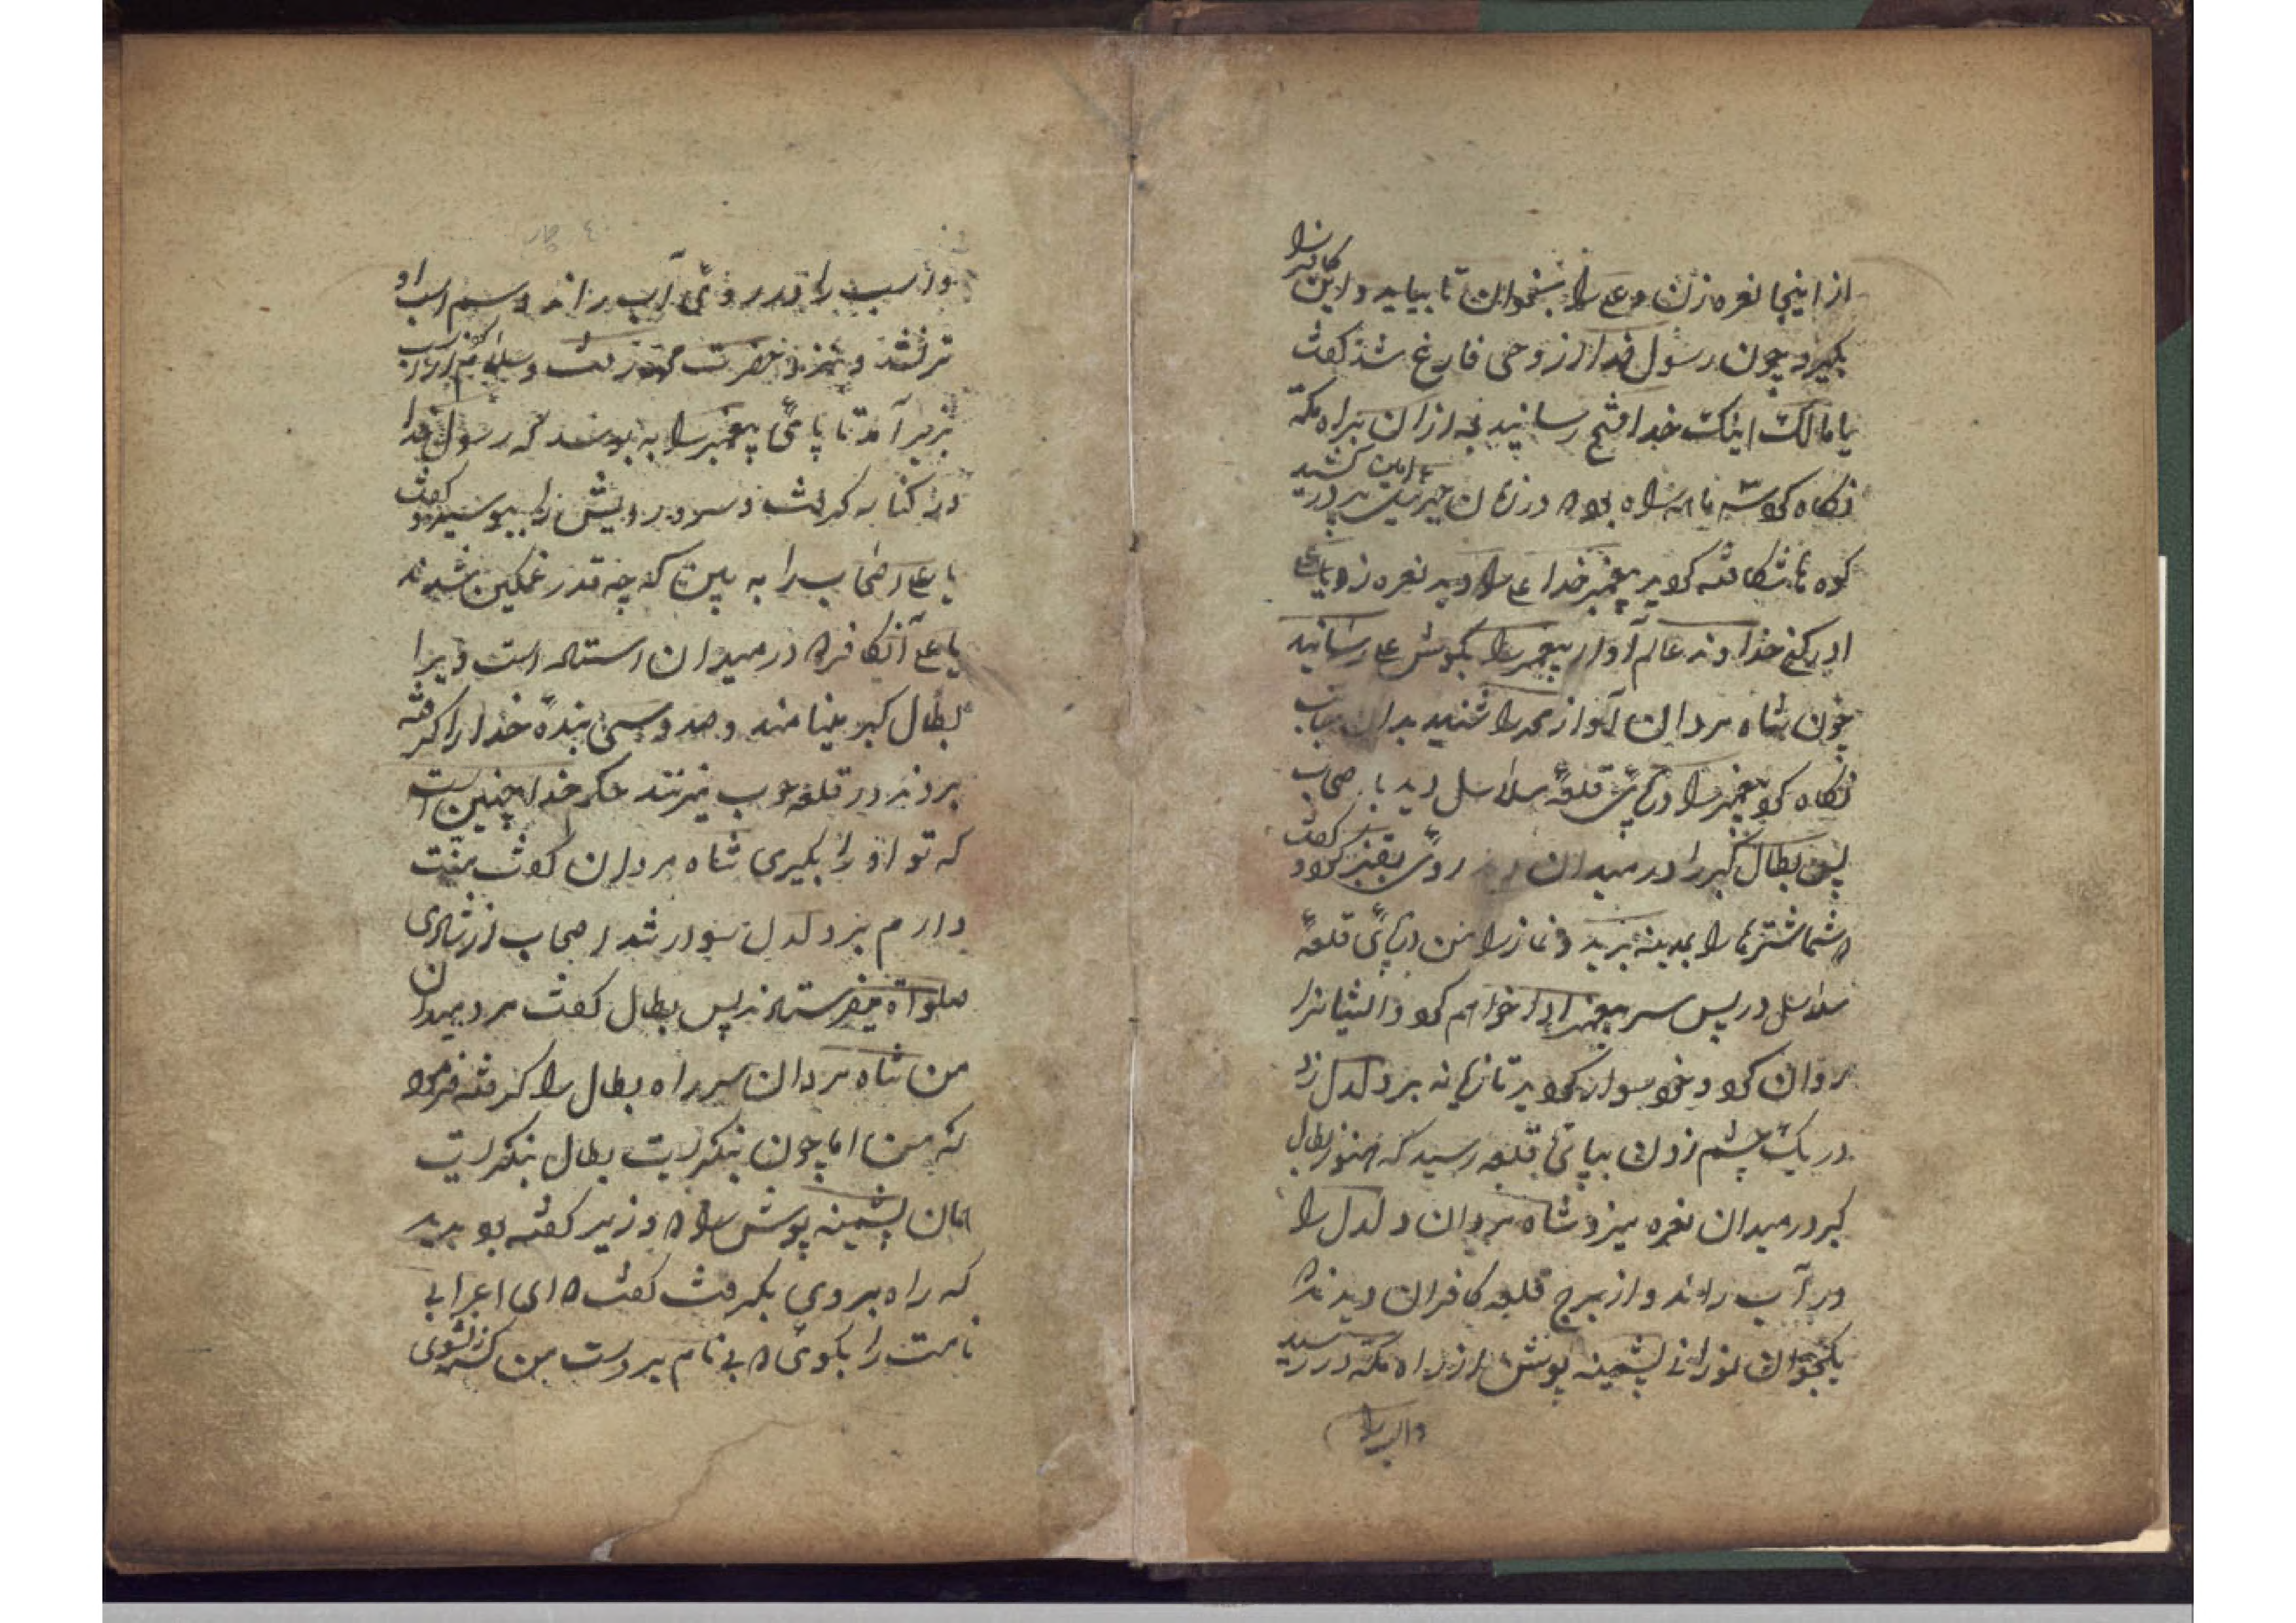 از اینجا نعره زن و علی را بخوان تا بیاید و این کافر را
بگیرد چون رسول خدا از وحی فارغ شد گفت
یا مالک اینک خدا فتح رسانید بعد از ان براه مکه
نگاه کو
کوه ها شکافته کو پد پیغمبر خدا علی را دید نعره زد یا علی
ادرکنی خداوند عالم آواز پیغمبر را بگوش علی رسانید
چون شاه مردان آواز محمد را شنید بدان جانب
نگاه کو پیغمبر را در پای قلعهٔ سلاسل دید با صحاب
پس بطال کبر را در میدان روی بقنبر کو و گفت
شما شترها را بمدینه برید و نماز را من در پای قلعهٔ
سلاسل در پس سر پیغمبر ادا خواهم کو و ایشانرا
روان کو و خو سوار کو ید تازیانه بر دلدل زد
در یک چشم زدن بپای قلعه رسید که هنوز بطال
کبر در میدان نعره میزد شاه مردان دلدل را
در آب راند و از برج قلعه کافران دیدند
یکجوان نورانی پشمینه پوش از راه مکه در رسید
و اسب را
و اسب را در روی آب راند و سم اسب او
تر نشد و بنزد حضرت محمد رفت و سلام کرد از اسب
بزیر آمد تا پای پیغمبر را به بوسد که رسول خدا
در کنار گرفت و سر و رویش را ببوسید و گفت
یا علی اصحاب را به بین که چه قدر غمگین شدند
یا علی آن کافر در میدان استاده است ویرا
بطال کبر مینامند و صد و سی بندهٔ خدا را گرفته
بردند در قلعه چوب میزنند حکم خدا چنین است
که تو او را بگیری شاه مردان گفت منت
دارم بر دلدل سوار شد اصحاب از شادی
صلواة میفرستادند پس بطال گفت مرد میدان
من شاه مردان سر راه بطال را گرفته فرمو
که من اما چون بنگریست بطال بنگریست
همان پشمینه پوش را وزیر گفته بو دید
که راه بروی بگرفت گفت ای اعرابی
نامت را بگوی بی نام بر دست من کشته نشوی